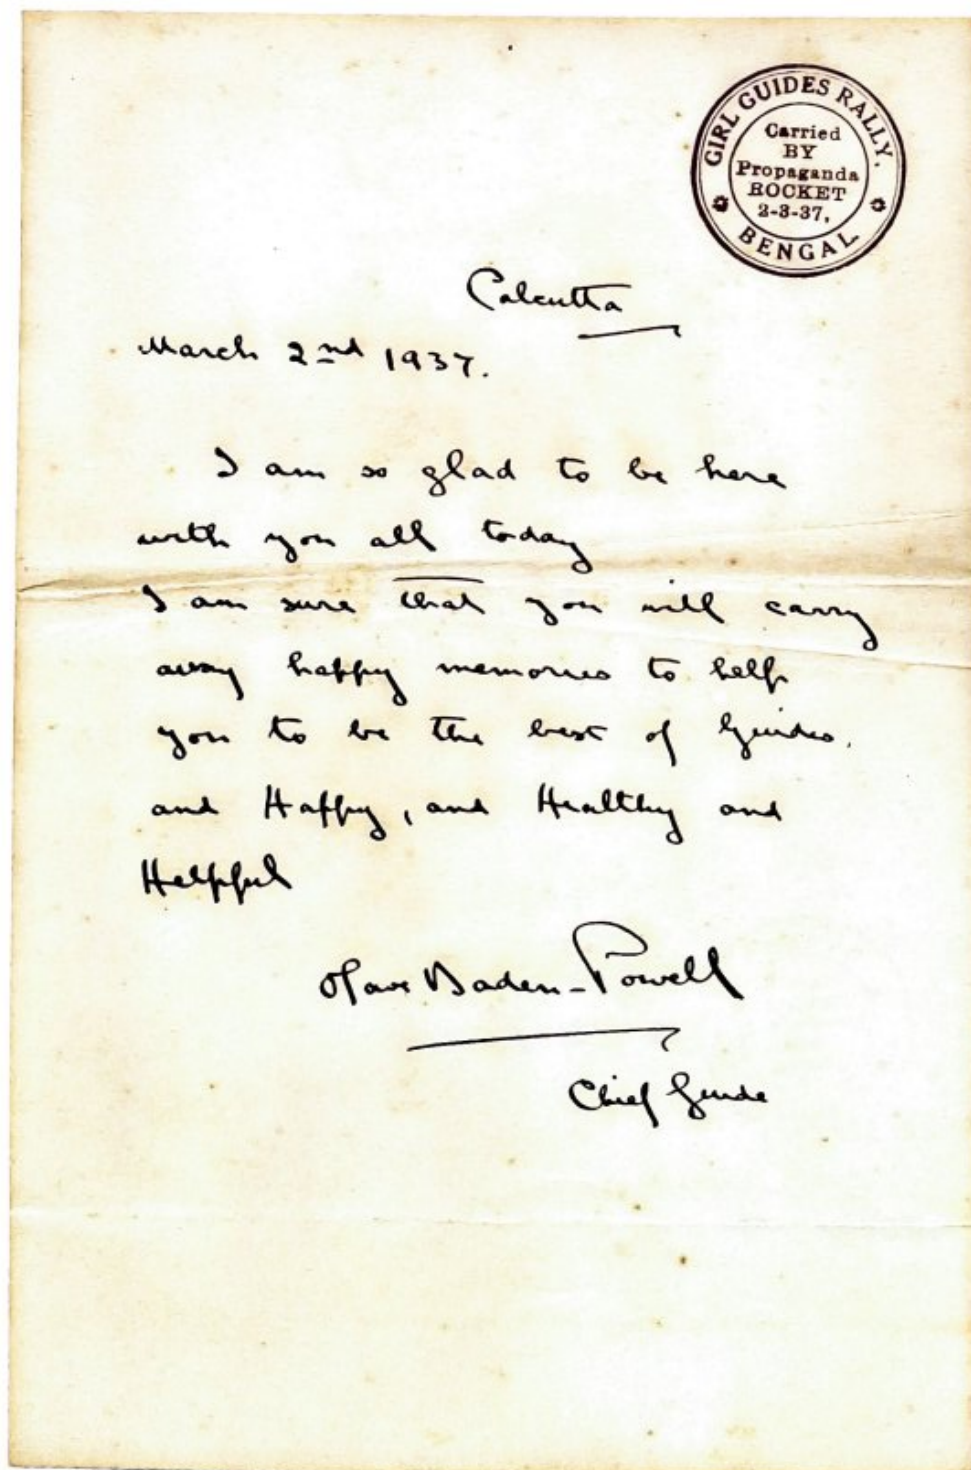 GIRL GUIDES RALLY.
Carried
BY
Propaganda
ROCKET
2-3-37,
BENGAL
Calcutta
March 2nd 1937.
I am so glad to be here
with you all today
I am sure that you will carry
away happy memories to help
you to be the best of Guides.
and Happy, and Healthy and
Helpful
Olave Baden-Powell
Chief Guide